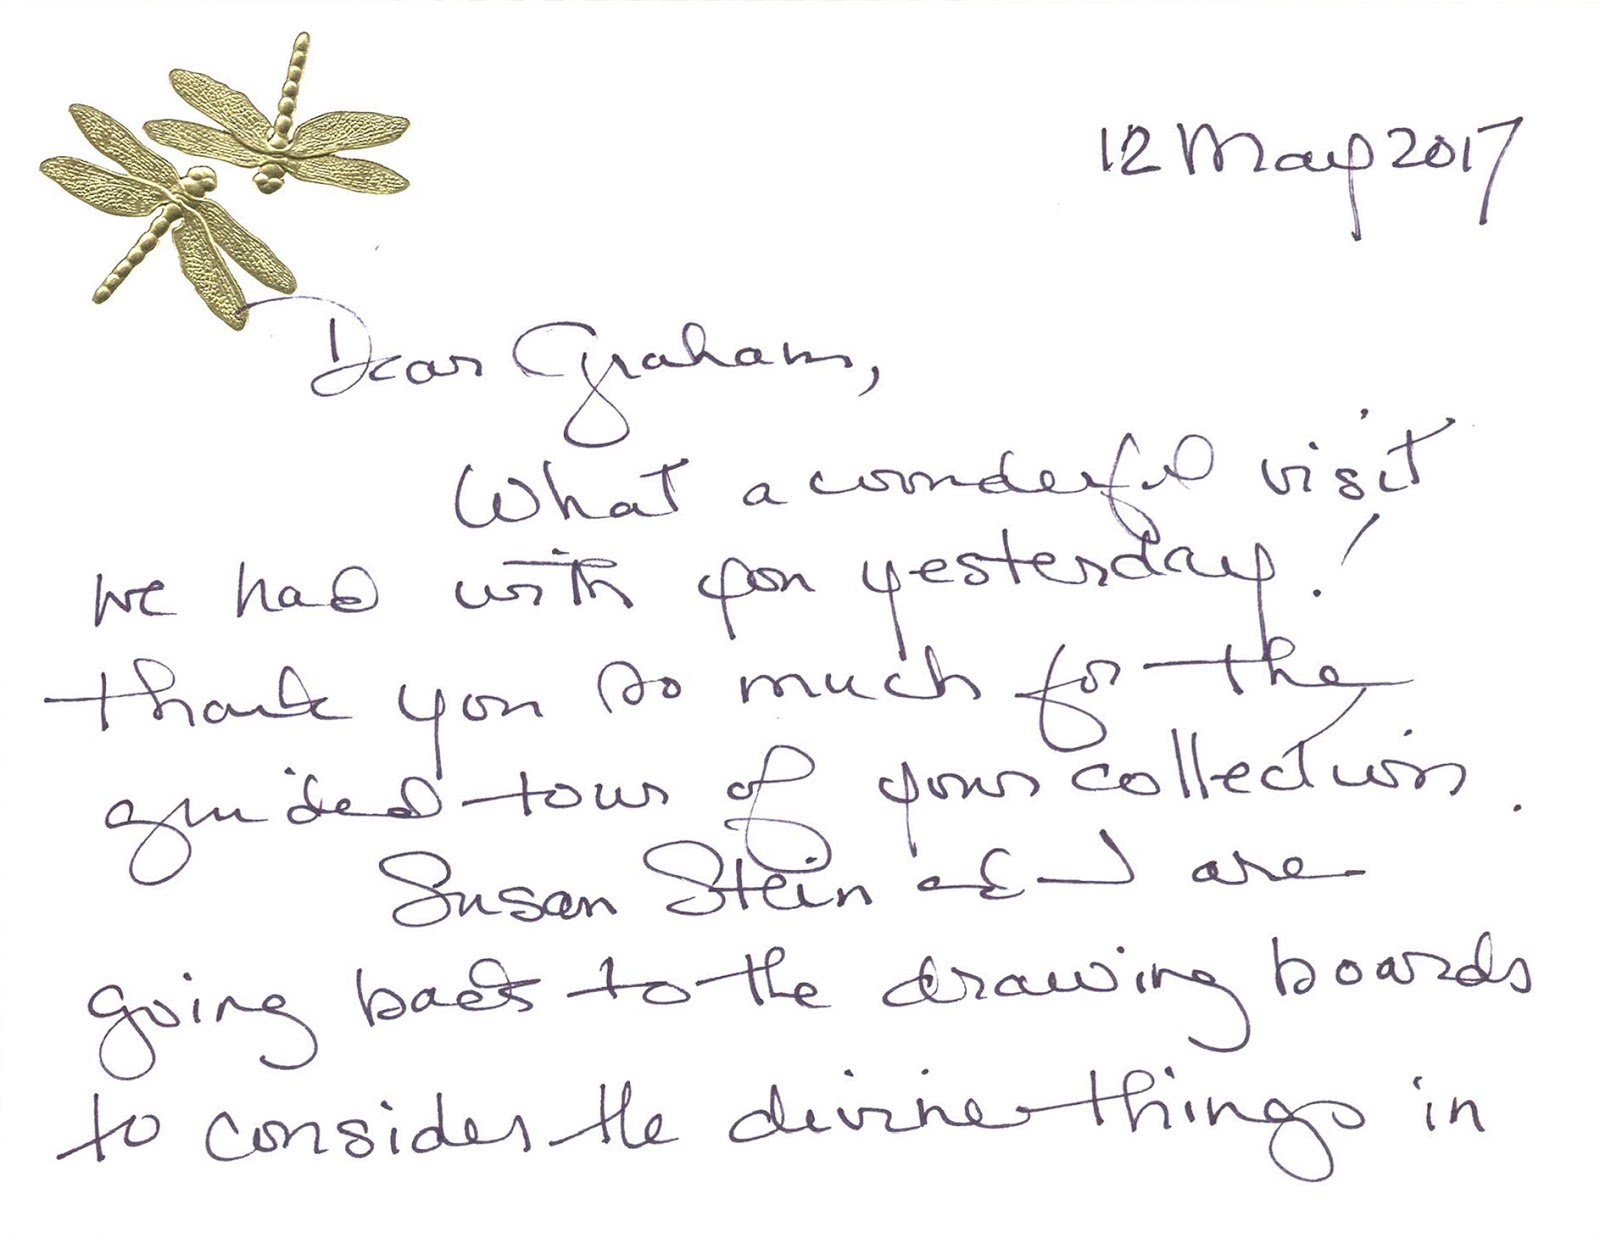 12 May 2017
Dear Graham,
What a wonderful visit
we had with you yesterday!
Thank you so much for the
guided tour of your collection.
Susan Stein & I are
going back to the drawing boards
to consider the divine things in